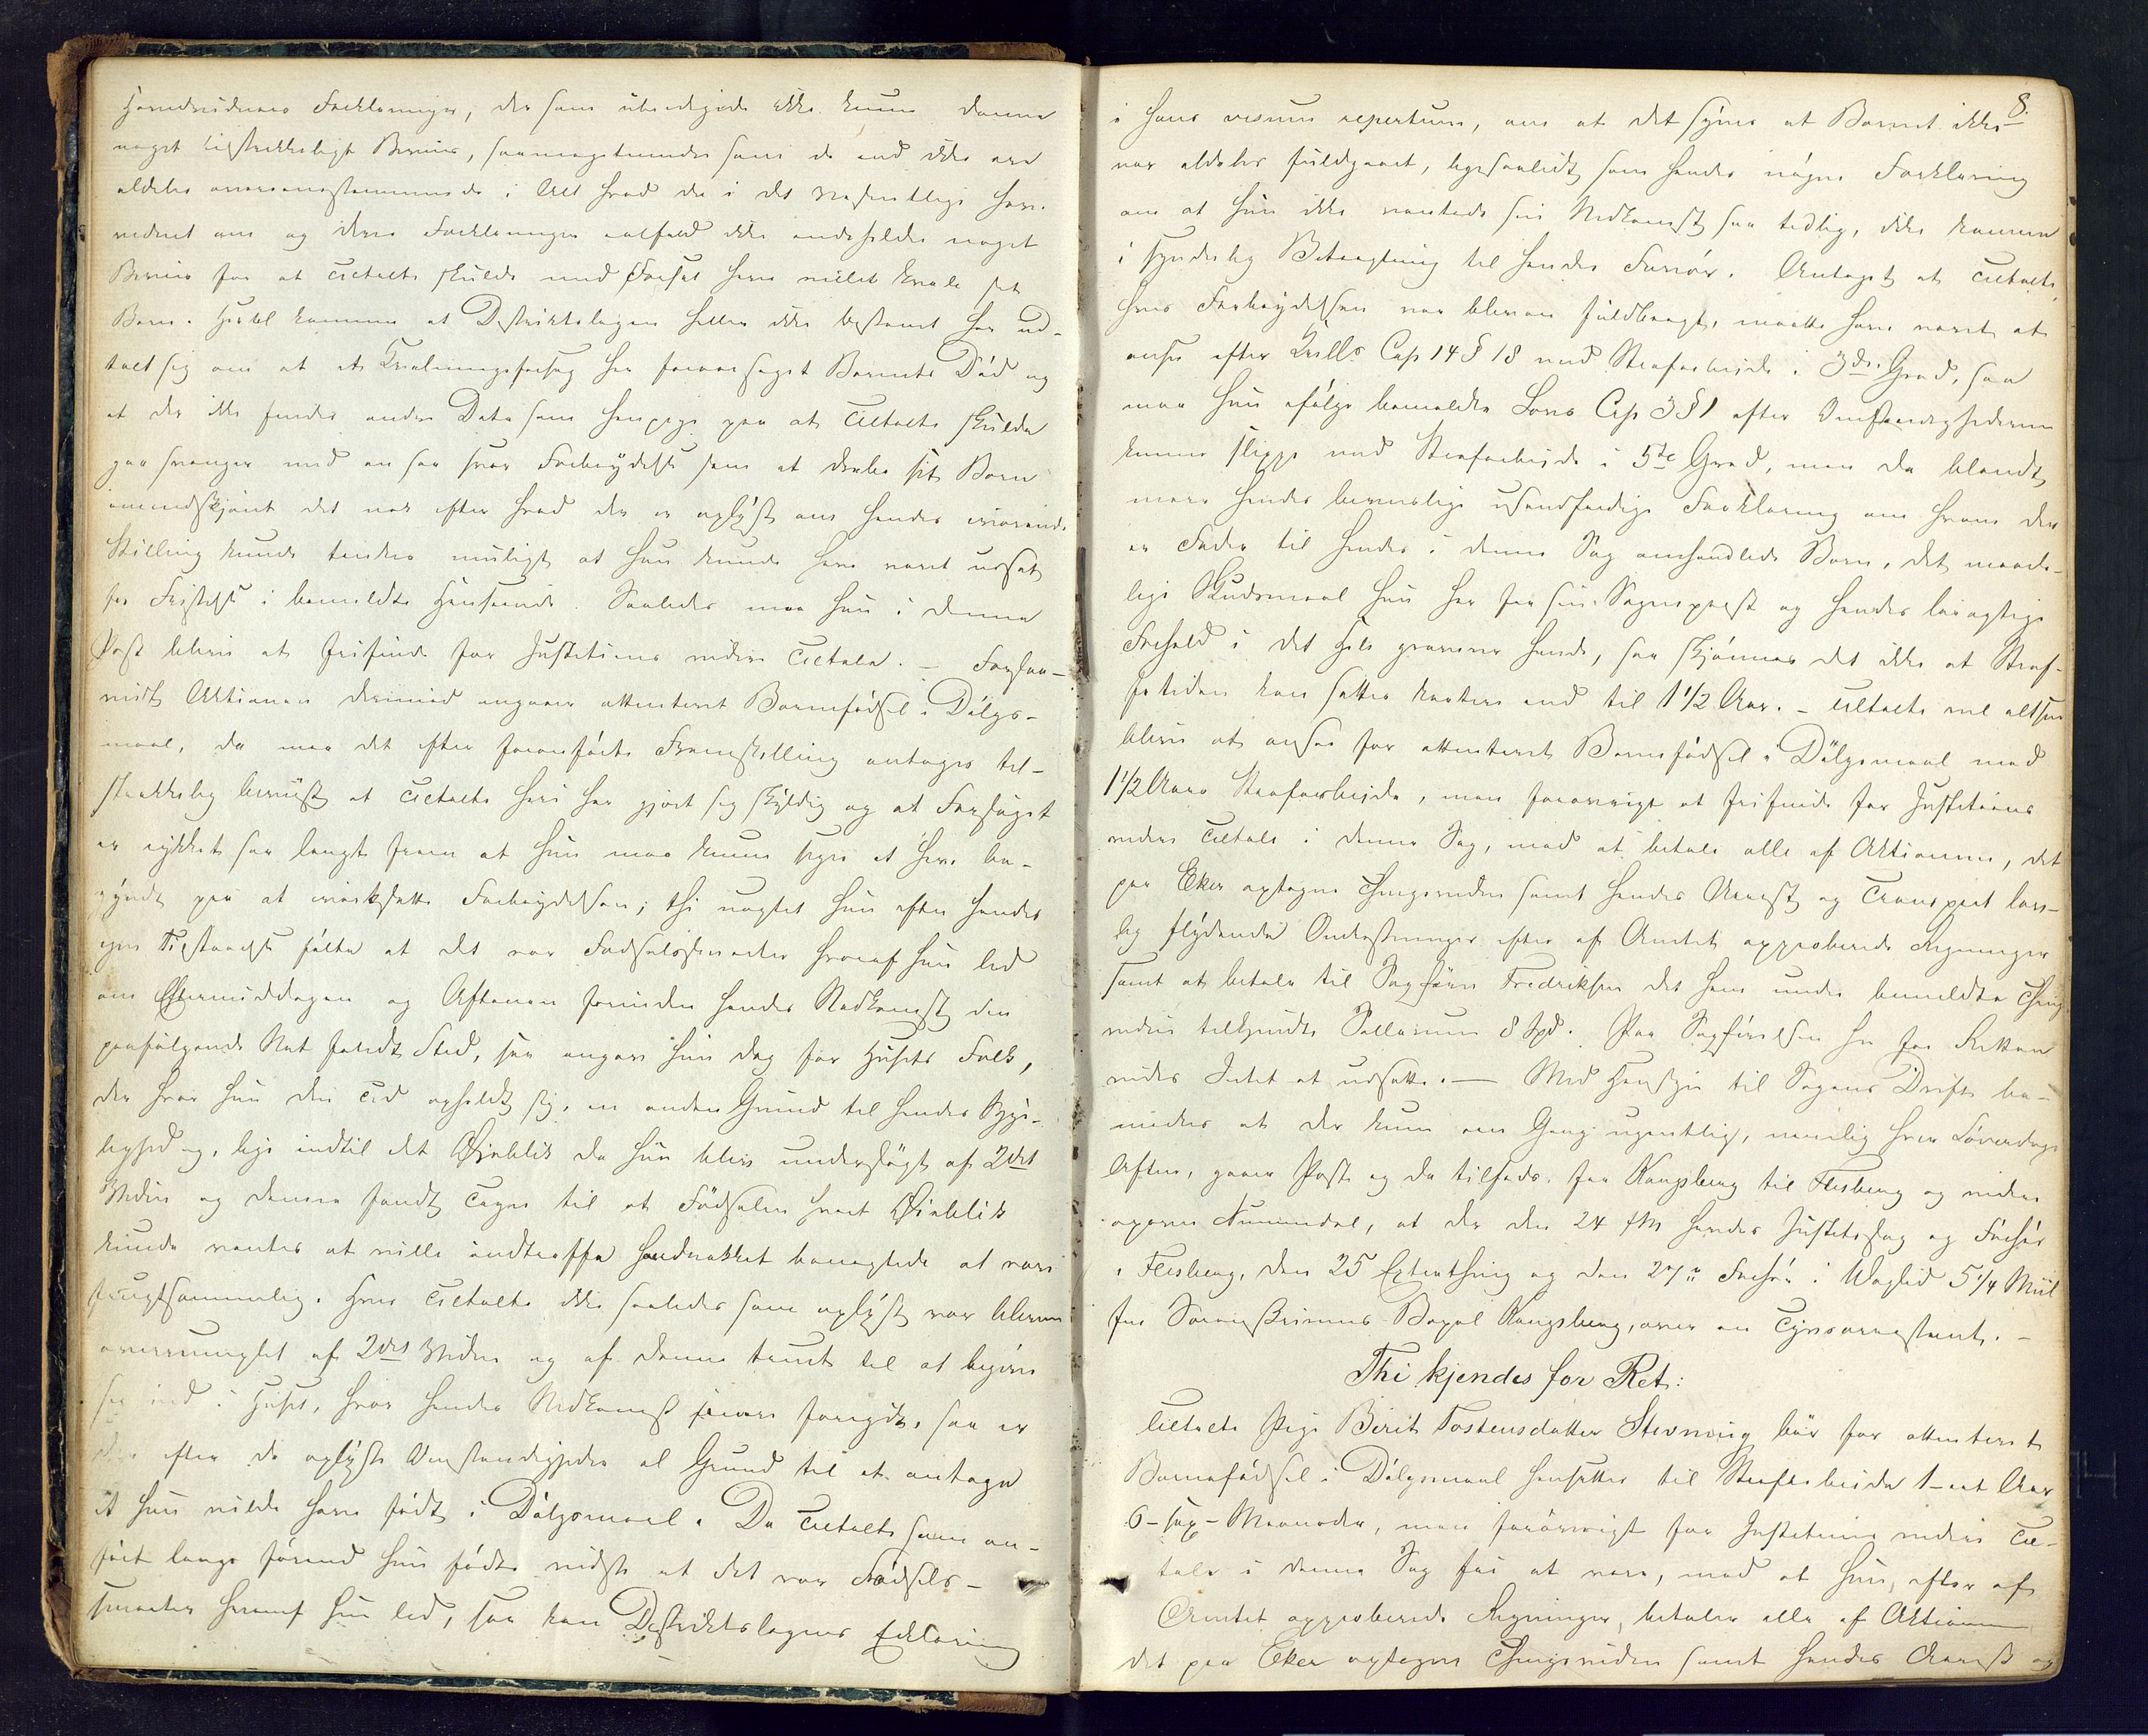 Hovedvidners Forklaringer, der som ubeedigede ikke kunne danne
noget tilstrækkeligt Beviis, saameget mindre som de end ikke ere
aldeles overeensstemmende i Alt hvad de i det væsentlige have
vidnet om og deres Forklaringer ialfald ikke indeholde noget
Beviis for at Tiltalte skulde med Forsæt have villet kvæle sit
Barn. Hertil kommer at Distriktslægen heller ikke bestemt har ud-
talt sig om at et Kvælningsforsøg har foraarsaget Barnets Død og
at der ikke findes andre Data som henpege paa at Tiltalte skulde
gaa svanger med en saa svær Forbrydelse som at dræbe sit Barn
omendskjønt det nok efter hvad der er oplyst om hendes
Stilling kunde tænkes muligt at hun kunde have været udsat
for Fristelse i bemeldte Henseende. Saaledes maa hun i denne
Post blive at frifinde for Justitiens videre Tiltale. – Forsaa-
vidt Aktionen derimod angaaer attenteret Barnefødsel i Dølgs-
maal, da maa det efter foranførte Fremstilling antages til-
strækkelig beviist at Tiltalte heri har gjort sig skyldig og at Forsøget
er rykket saa langt frem at hun maa kunne siges at have be-
gyndt paa at iværksætte Forbrydelsen; thi uagtet hun efter hendes
egen Tilstaaelse følte at det var Fødselssmerter hvoraf hun led
om Eftermiddagen og Aftenen forinden hendes Nedkomst den
paafølgende Nat fandt Sted, saa angav hun dog for Husets Folk,
der hvor hun den Tid opholdt sig, en anden Grund til hendes Syge-
lighed og, lige indtil det Øieblik da hun blev undersøgt af 2det
Vidne og denne fandt Tegn til at Fødselen hvert Øieblik
kunde ventes at ville indtræffe haardnakket benægtede at være
frugtsommelig. Hvis Tiltalte ikke saaledes som oplyst var bleven
overrumplet af 2det Vidne og af denne truet til at begive
sig ind i Huset, hvor hendes Nedkomst foregik, saa er
der efter de oplyste Omstændigheder al Grund til at antage
at hun vilde have født i Dølgsmaal. Da Tiltalte som an-
ført længe førend hun fødte vidste at det var Fødsels-
smerter hvoraf hun led, saa kan Distriktslægens Erklæring
8.
i hans visum repertum, om at det synes at Barnet ikke
var aldeles fuldgaaet, ligesaalidt som hendes egen Forklaring
om at hun ikke ventede sin Nedkomst saa tidlig, ikke komme
i synderlig Betragtning til hendes Favør. Antaget at Tiltalte,
hvis Forbrydelsen var bleven fuldbragt, maatte have været at
ansee efter Krills Cap 14 § 18 med Strafarbeide i 3die Grad, saa
maa hun ifølge bemeldte Lovs Cap 3 § 1 efter Omstændighederne
kunne slippe med Strafarbeide i 5te Grad, men da blandt
mere hendes bevislige usandfærdige Forklaring om hvem der
er Fader til hendes i denne Sag omhandlede Barn, det maade-
lige Skudsmaal hun har fra sin Sognepræst og hendes løgagtige
Forhold i det Hele graverer hende, saa skjønnes det ikke at Straf-
fetiden kan sættes kortere end til 1 1/2 Aar. – Tiltalte vil altsaa
blive at ansee for attenteret Barnefødsel i Dølgsmaal med
1 1/2 Aars Strafarbeide, men forøvrigt at frifinde for Justitiens
videre Tiltale i denne Sag, mod at betale alle af Aktionen, det
paa Eker optagne Thingsvidne samt hendes Arrest og Transport lov-
lig flydende Omkostninger efter af Amtet approberede Regninger
samt at betale til Sagfører Fredriksen det ham under bemeldte Thing-
vidne tilkjendte Sallarium 8 Spd. Paa Sagførelsen her for Retten
vides Intet at udsætte. – Med Hensyn til Sagens Drift be-
mærkes at der kun een Gang ugentlig, nemlig hver Løverdags
Aften, gaaer Post og da tilfods, fra Kongsberg til Flesberg og videre
opover Nummedal, at der den 24 f.M. holdtes Justitssag og Forhør
i Flesberg, den 25 Extrathing og den 27de Forhør i Waglid 5 1/4 Miil
fra Sorenskriverens Bopæl Kongsberg, over en Tyvsarrestant. –
Thi kjendes for Ret:
Tiltalte Pige Birit Tostensdatter Stevning bør for attenteret
Barnefødsel i Dølgsmaal hensættes til Strafarbeide 1 – eet Aar
6 – sex – Maaneder, men forøvrigt for Justitiens videre Til-
tale i denne Sag fri at være, mod at hun, efter af
Amtet approberede Regninger, betaler alle af Aktionen
det paa Eker optagne Thingsvidne samt hendes Arrest og